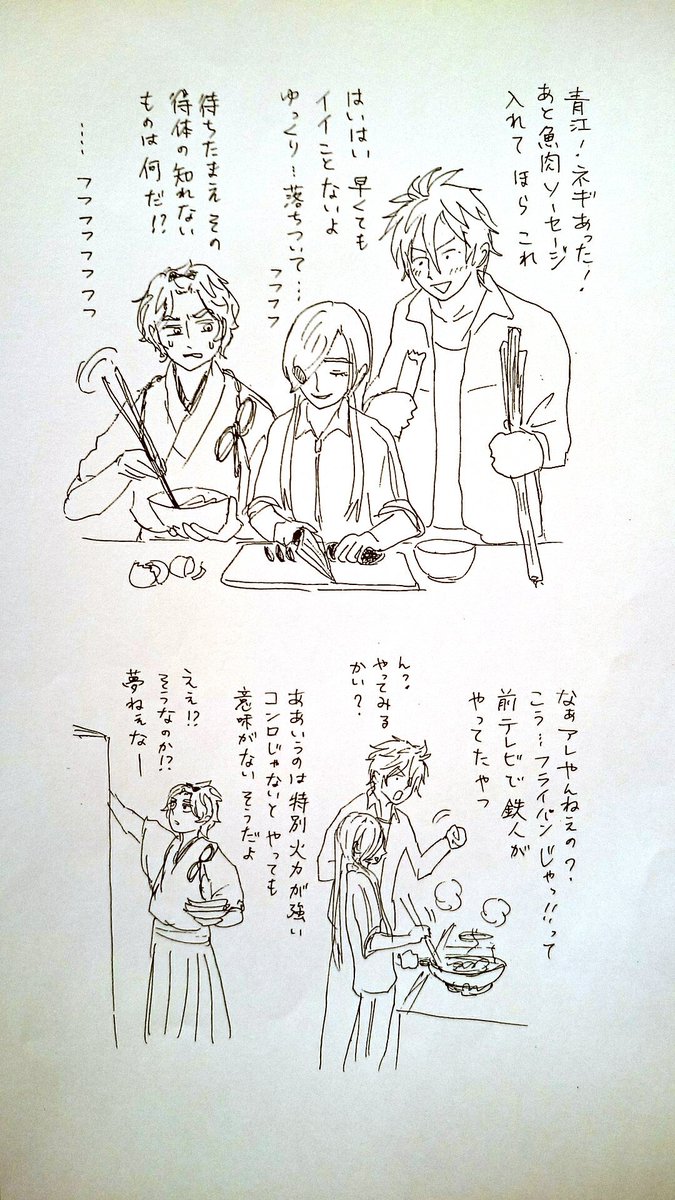 青江!ネギあった!
あと魚肉ソーセージ
入れて ほら これ
はいはい 早くても
イイことないよ
ゆっくり…落ちついて…
フフフフ
待ちたまえ その
得体の知れない
ものは 何だ!?
…… フフフフフフフ
なぁアレやんねぇの?
こう…フライパンじゃっ!!って
前テレビで 鉄人が
やってたやつ
ん?
やってみる
かい?
ああいうのは 特別火力が強い
コンロじゃないと やっても
意味がない そうだよ
ええ!?
そうなのか!?
夢ねぇなー